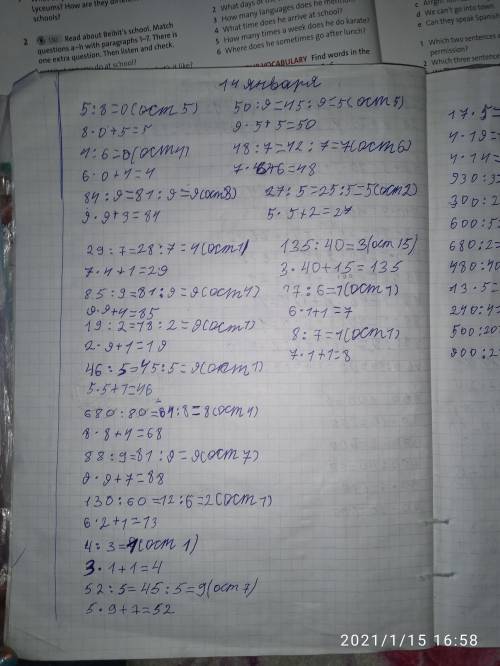 lyceums? How are they different
schools?
2 Read about Beibit's school. Match
questions a–h with paragraphs 1–7. There is
one extra question. Then listen and check.
2 What days of the
3 How many languages does he mention?
4 What time does he arrive at school?
5 How many times a week does he do karate?
6 Where does he sometimes go after lunch?
VOCABULARY Find words in the
d We can't go into town.
e Can they speak Spanish
1 Which two sentences
permission?
2 Which three sentences
14 января
5:8=0(ост 5)
8·0+5=5
4:6=0(ост4)
6·0+4=4
84:9=81:9=9(ост3)
9·9+3=84
50:9=45:9=5(ост5)
9·5+5=50
48:7=42:7=7(ост6)
7·6+6=48
27:5=25:5=5(ост2)
5·5+2=27
29:7=28:7=4(ост1)
7·4+1=29
85:9=81:9=9(ост4)
9·9+4=85
19:2=18:2=9(ост1)
2·9+1=19
46:5=45:5=9(ост1)
5·5+1=46
680:80=64:8=8(ост4)
8·8+4=68
88:9=81:9=9(ост7)
9·9+7=88
130:60=12:6=2(ост1)
6·2+1=13
4:3=1(ост 1)
3·1+1=4
52:5=45:5=9(ост7)
5·9+7=52
135:40=3(ост15)
3·40+15=135
7:6=1(ост1)
6·1+1=7
8:7=1(ост1)
7·1+1=8
17·5=
4·19=
4·14=
930:3
300:2
600:5
680:2
480:40
13·5=
240:4
500:20
900:2
2021/1/15 16:58